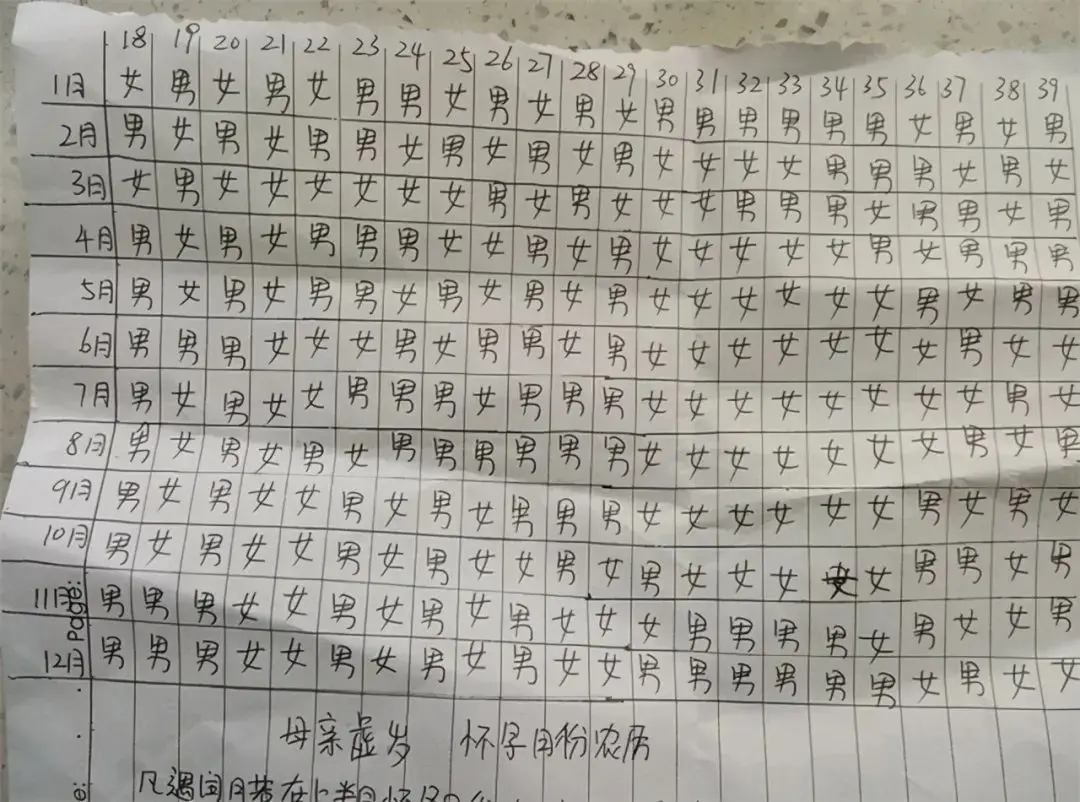 18 19 20 21 22 23 24 25 26 27 28 29 30 31 32 33 34 35 36 37 38 39
1月 女 男 女 男 女 男 男 女 男 女 男 女 男 男 男 男 男 男 女 男 女 男
2月 男 女 男 女 男 男 女 男 女 男 女 男 女 女 女 女 男 男 男 女 男 女
3月 女 男 女 女 女 女 女 女 男 女 男 女 女 女 男 男 男 女 男 男 女 男
4月 男 女 男 女 男 男 男 女 女 男 女 男 女 女 女 女 女 男 女 男 男 男
5月 男 女 男 女 男 男 女 男 女 男 女 男 女 女 女 女 女 女 男 女 男 男
6月 男 男 男 女 女 女 男 女 男 男 女 男 女 女 女 女 女 女 女 男 女 女
7月 男 女 男 女 女 男 男 男 女 男 男 男 女 女 女 女 女 女 女 女 男 女
8月 男 女 男 女 男 女 男 男 男 男 男 男 女 女 女 女 女 女 女 男 女 男
9月 男 女 男 女 女 男 女 男 女 男 男 男 女 女 女 女 女 女 男 女 男 女
10月 男 女 男 女 女 男 女 男 女 女 男 女 男 女 女 女 女 女 男 男 女 男
11月 男 男 男 女 女 男 女 男 女 男 女 女 女 男 男 男 男 女 男 女 女 男
12月 男 男 男 女 女 男 女 男 女 男 女 女 男 男 男 男 男 男 女 男 女 女
Page:
母亲虚岁 怀孕月份农历
凡遇闰月若在上半月怀孕